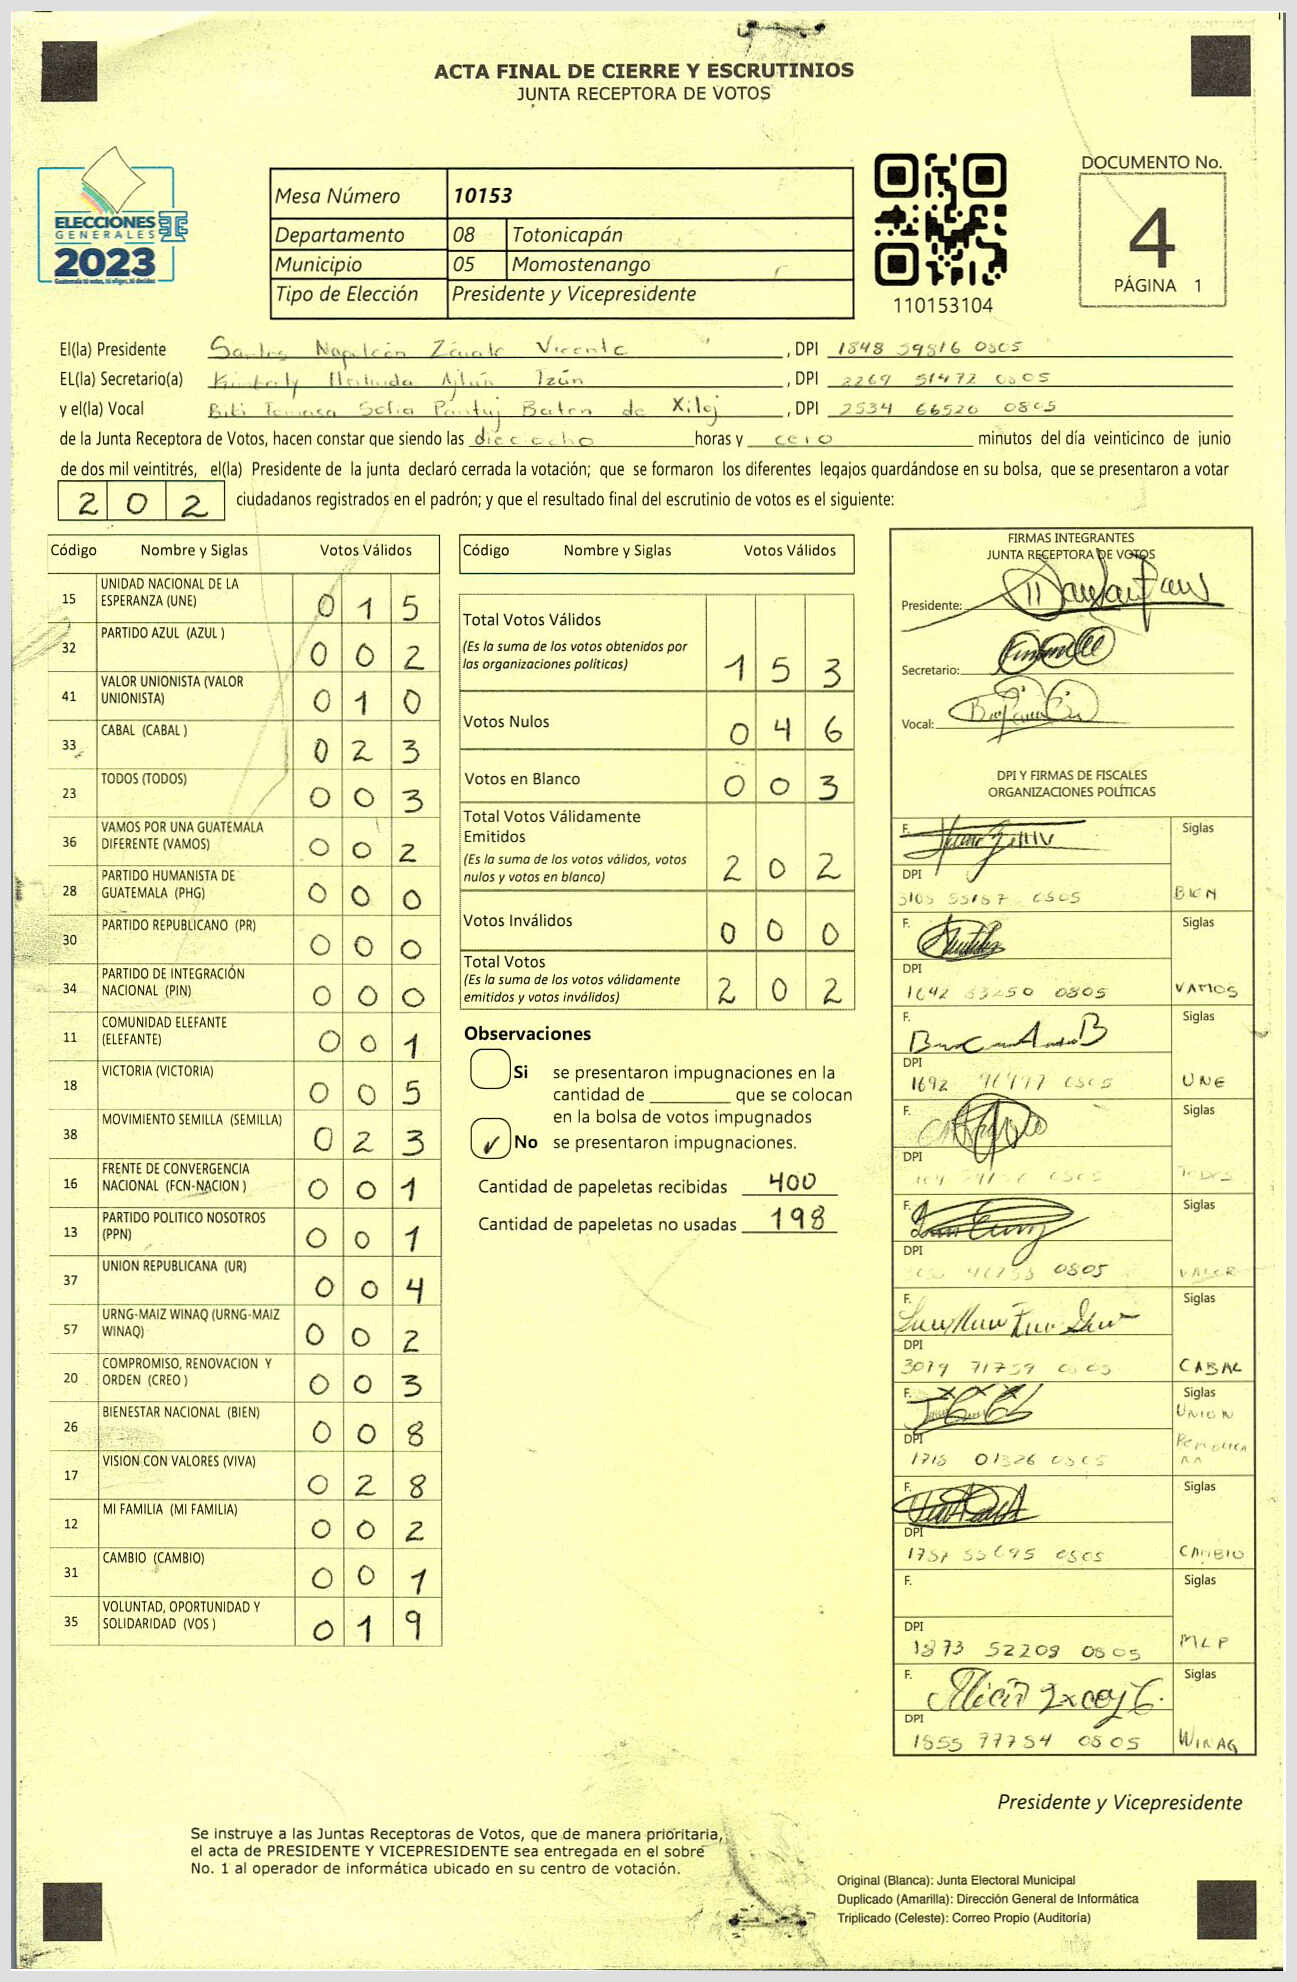 ACTA FINAL DE CIERRE Y ESCRUTINIOS
JUNTA RECEPTORA DE VOTOS
DOCUMENTO No.
4
PÁGINA 1
ELECCIONES
GENERALES
2023
Mesa Número 10153
Departamento 08 Totonicapán
Municipio 05 Momostenango
Tipo de Elección Presidente y Vicepresidente
110153104
El(la) Presidente Santos Napoleón Vicente, DPI 1848 59816 0805
EL(la) Secretario(a) Kimberly, DPI 2269 51472 0805
y el(la) Vocal Sofia Baten de Xiloj, DPI 2534 66520 0805
de la Junta Receptora de Votos, hacen constar que siendo las dieciocho horas y cero minutos del día veinticinco de junio
de dos mil veintitrés, el(la) Presidente de la junta declaró cerrada la votación; que se formaron los diferentes legajos guardándose en su bolsa, que se presentaron a votar
202 ciudadanos registrados en el padrón; y que el resultado final del escrutinio de votos es el siguiente:
Código Nombre y Siglas Votos Válidos
15 UNIDAD NACIONAL DE LA ESPERANZA (UNE) 015
32 PARTIDO AZUL (AZUL ) 002
41 VALOR UNIONISTA (VALOR UNIONISTA) 010
33 CABAL (CABAL ) 023
23 TODOS (TODOS) 003
36 VAMOS POR UNA GUATEMALA DIFERENTE (VAMOS) 002
28 PARTIDO HUMANISTA DE GUATEMALA (PHG) 000
30 PARTIDO REPUBLICANO (PR) 000
34 PARTIDO DE INTEGRACIÓN NACIONAL (PIN) 000
11 COMUNIDAD ELEFANTE (ELEFANTE) 001
18 VICTORIA (VICTORIA) 005
38 MOVIMIENTO SEMILLA (SEMILLA) 023
16 FRENTE DE CONVERGENCIA NACIONAL (FCN-NACION ) 001
13 PARTIDO POLITICO NOSOTROS (PPN) 001
37 UNION REPUBLICANA (UR) 004
57 URNG-MAIZ WINAQ (URNG-MAIZ WINAQ) 002
20 COMPROMISO, RENOVACION Y ORDEN (CREO ) 003
26 BIENESTAR NACIONAL (BIEN) 008
17 VISION CON VALORES (VIVA) 028
12 MI FAMILIA (MI FAMILIA) 002
31 CAMBIO (CAMBIO) 001
35 VOLUNTAD, OPORTUNIDAD Y SOLIDARIDAD (VOS ) 019
Código Nombre y Siglas Votos Válidos
Total Votos Válidos
(Es la suma de los votos obtenidos por
las organizaciones políticas) 153
Votos Nulos 046
Votos en Blanco 003
Total Votos Válidamente
Emitidos
(Es la suma de los votos válidos, votos
nulos y votos en blanco) 202
Votos Inválidos 000
Total Votos
(Es la suma de los votos válidamente
emitidos y votos inválidos) 202
Observaciones
Si se presentaron impugnaciones en la
cantidad de ________ que se colocan
en la bolsa de votos impugnados
✓ No se presentaron impugnaciones.
Cantidad de papeletas recibidas 400
Cantidad de papeletas no usadas 198
FIRMAS INTEGRANTES
JUNTA RECEPTORA DE VOTOS
Presidente:
Secretario:
Vocal:
DPI Y FIRMAS DE FISCALES
ORGANIZACIONES POLÍTICAS
F. Siglas
DPI
0805 BIEN
F. Siglas
DPI
1642 0805 VAMOS
F. Siglas
DPI
1692 0805 UNE
F. Siglas
DPI
0805 TODOS
F. Siglas
DPI
0805 VALOR
F. Siglas
DPI
3079 71759 0805 CABAL
F. Siglas
UNION
DPI
1718 01326 0805
F. Siglas
DPI
0805 CAMBIO
F. Siglas
DPI
1873 52208 0805 MLP
F. Siglas
DPI
1855 77754 0805 WINAQ
Presidente y Vicepresidente
Se instruye a las Juntas Receptoras de Votos, que de manera prioritaria,
el acta de PRESIDENTE Y VICEPRESIDENTE sea entregada en el sobre
No. 1 al operador de informática ubicado en su centro de votación.
Original (Blanca): Junta Electoral Municipal
Duplicado (Amarilla): Dirección General de Informática
Triplicado (Celeste): Correo Propio (Auditoría)